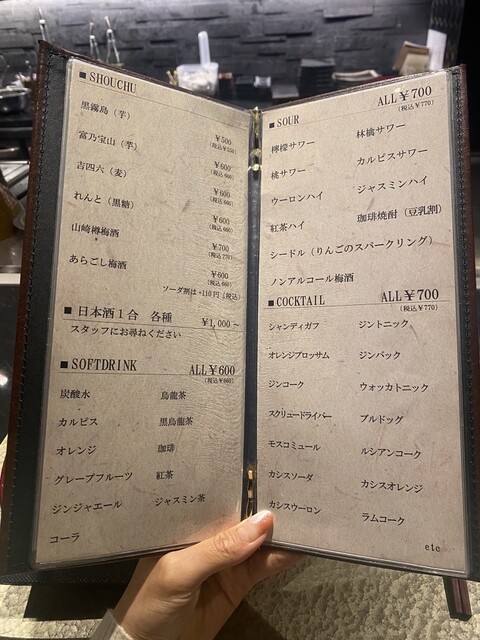 ■ SHOUCHU
黒霧島（芋） ¥500
（税込¥550）
富乃宝山（芋） ¥600
（税込 660）
吉四六（麦） ¥600
（税込 660）
れんと（黒糖） ¥600
（税込 660）
山崎樽梅酒 ¥700
（税込 770）
あらごし梅酒 ¥600
（税込 660）
ソーダ割は+110円（税込）
■ 日本酒1合 各種 ¥1,000～
スタッフにお尋ねください
■ SOFTDRINK ALL¥600
（税込¥660）
炭酸水 烏龍茶
カルピス 黒烏龍茶
オレンジ 珈琲
グレープフルーツ 紅茶
ジンジャエール ジャスミン茶
コーラ
■ SOUR ALL¥700
（税込¥770）
檸檬サワー 林檎サワー
桃サワー カルピスサワー
ウーロンハイ ジャスミンハイ
紅茶ハイ 珈琲焼酎（豆乳割）
シードル（りんごのスパークリング）
ノンアルコール梅酒
■ COCKTAIL ALL¥700
（税込¥770）
シャンディガフ ジントニック
オレンジブロッサム ジンバック
ジンコーク ウォッカトニック
スクリュードライバー ブルドッグ
モスコミュール ルシアンコーク
カシスソーダ カシスオレンジ
カシスウーロン ラムコーク
etc